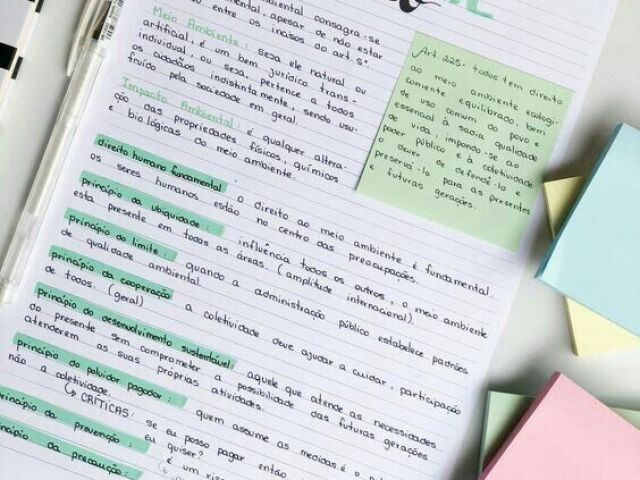 ambiental consagra-se
mental, apesar de não estar
entre os incisos do art. 5º.
Meio Ambiente: seja ele natural ou
artificial, é um bem jurídico trans-
individual, ou seja, pertence a todos
os cidadãos indistintamente, sendo usu-
fruído pela sociedade em geral.
Impacto Ambiental: é qualquer altera-
ção das propriedades físicas, químicas
e biológicas do meio ambiente.
Art. 225- todos tem direito
ao meio ambiente ecologi-
camente equilibrado, bem
de uso comum do povo e
essencial à sadia qualidade
de vida, impondo-se ao
poder público e à coletividade
o dever de defendê-lo e
preservá-lo para as presentes
e futuras gerações.
direito humano fundamental: o direito ao meio ambiente é fundamental.
os seres humanos estão no centro das preocupações.
princípio da ubiquidade: influência todos os outros, o meio ambiente
esta presente em todas as áreas. (amplitude internacional).
princípio do limite: quando a administração público estabelece padrões
de qualidade ambiental.
princípio da cooperação a coletividade deve ajudar a cuidar, participação
de todos. (geral)
princípio do desenvolvimento sustentável: aquele que atende as necessidades
do presente sem comprometer a possibilidade das futuras gerações
atenderem as suas próprias atividades.
princípio do poluidor pagador: quem assume as medidas é o
não a coletividade.
CRITICAS: se eu posso pagar então
eu quiser?
princípio da prevenção: é um
princípio da precaução: